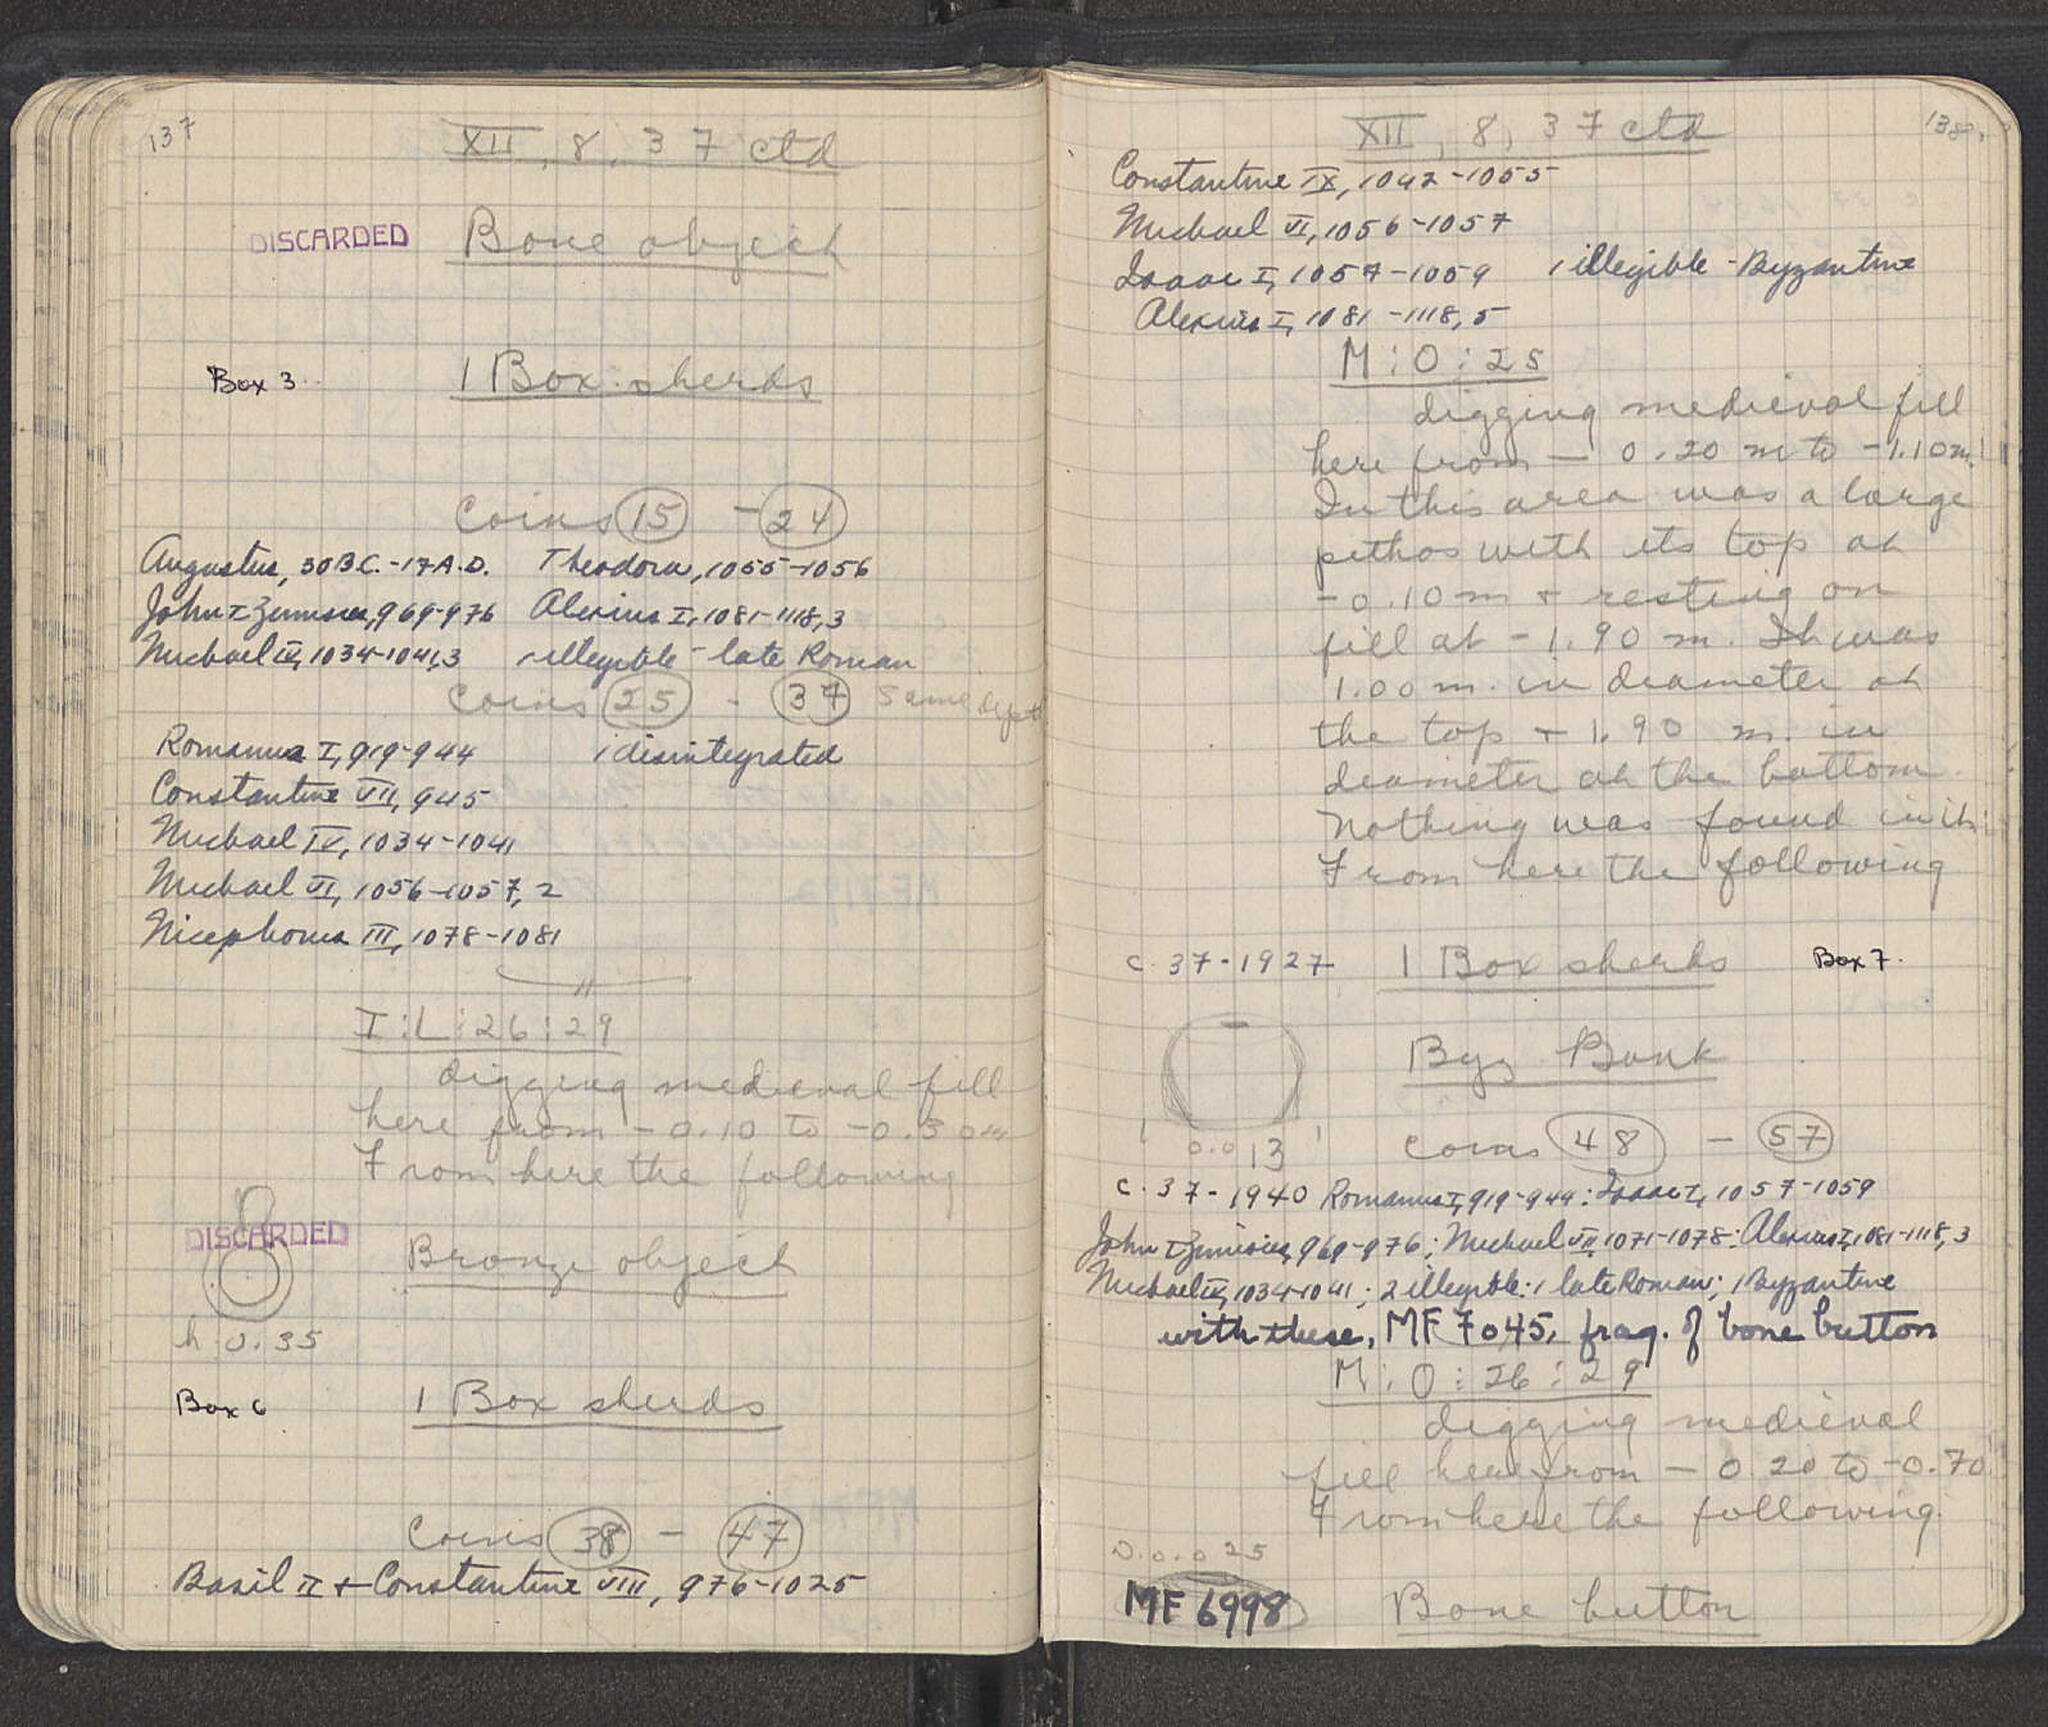 137
XII, 8, 37 ctd
DISCARDED Bone object
Box 3. 1 Box sherds
Coins 15 - 24
Augustus, 30 B.C. - 17 A.D. Theodora, 1055-1056
John I Zimisces, 969-976 Alexius I, 1081-1118, 3
Michael IV, 1034-1041, 3 1 illegible - late Roman
Coins 25 - 37 same depth
Romanus I, 919-944 1 disintegrated
Constantine VII, 945
Michael IV, 1034-1041
Michael VI, 1056-1057, 2
Nicephorus III, 1078-1081
I:L:26:29
digging medieval fill
here from -0.10 to -0.30m
From here the following
DISCARDED
Bronze object
h 0.35
Box 6 1 Box sherds
Coins 38 - 47
Basil II + Constantine VIII, 976-1025
138
XII, 8, 37 ctd
Constantine IX, 1042-1055
Michael VI, 1056-1057
Isaac I, 1057-1059 1 illegible - Byzantine
Alexius I, 1081-1118, 5
M:O:25
digging medieval fill
here from - 0.20 m to -1.10m.
In this area was a large
pithos with its top at
-0.10m + resting on
fill at -1.90 m. It was
1.00 m. in diameter at
the top + 1.90 m. in
diameter at the bottom.
Nothing was found in it.
From here the following
C. 37-1927 1 Box sherds Box 7.
Byz Bowk
0.013
coins 48 - 57
C. 37-1940 Romanus I, 919-944: Isaac I, 1057-1059
John I Zimisces, 969-976; Michael VII, 1071-1078: Alexius I, 1081-1118, 3
Michael IV, 1034-1041; 2 illegible: 1 late Roman; 1 Byzantine
with these, MF 7045, frag. of bone button
M:O:26:29
digging medieval
fill here from - 0.20 to -0.70
From here the following
D. 0.025
MF 6998 Bone button